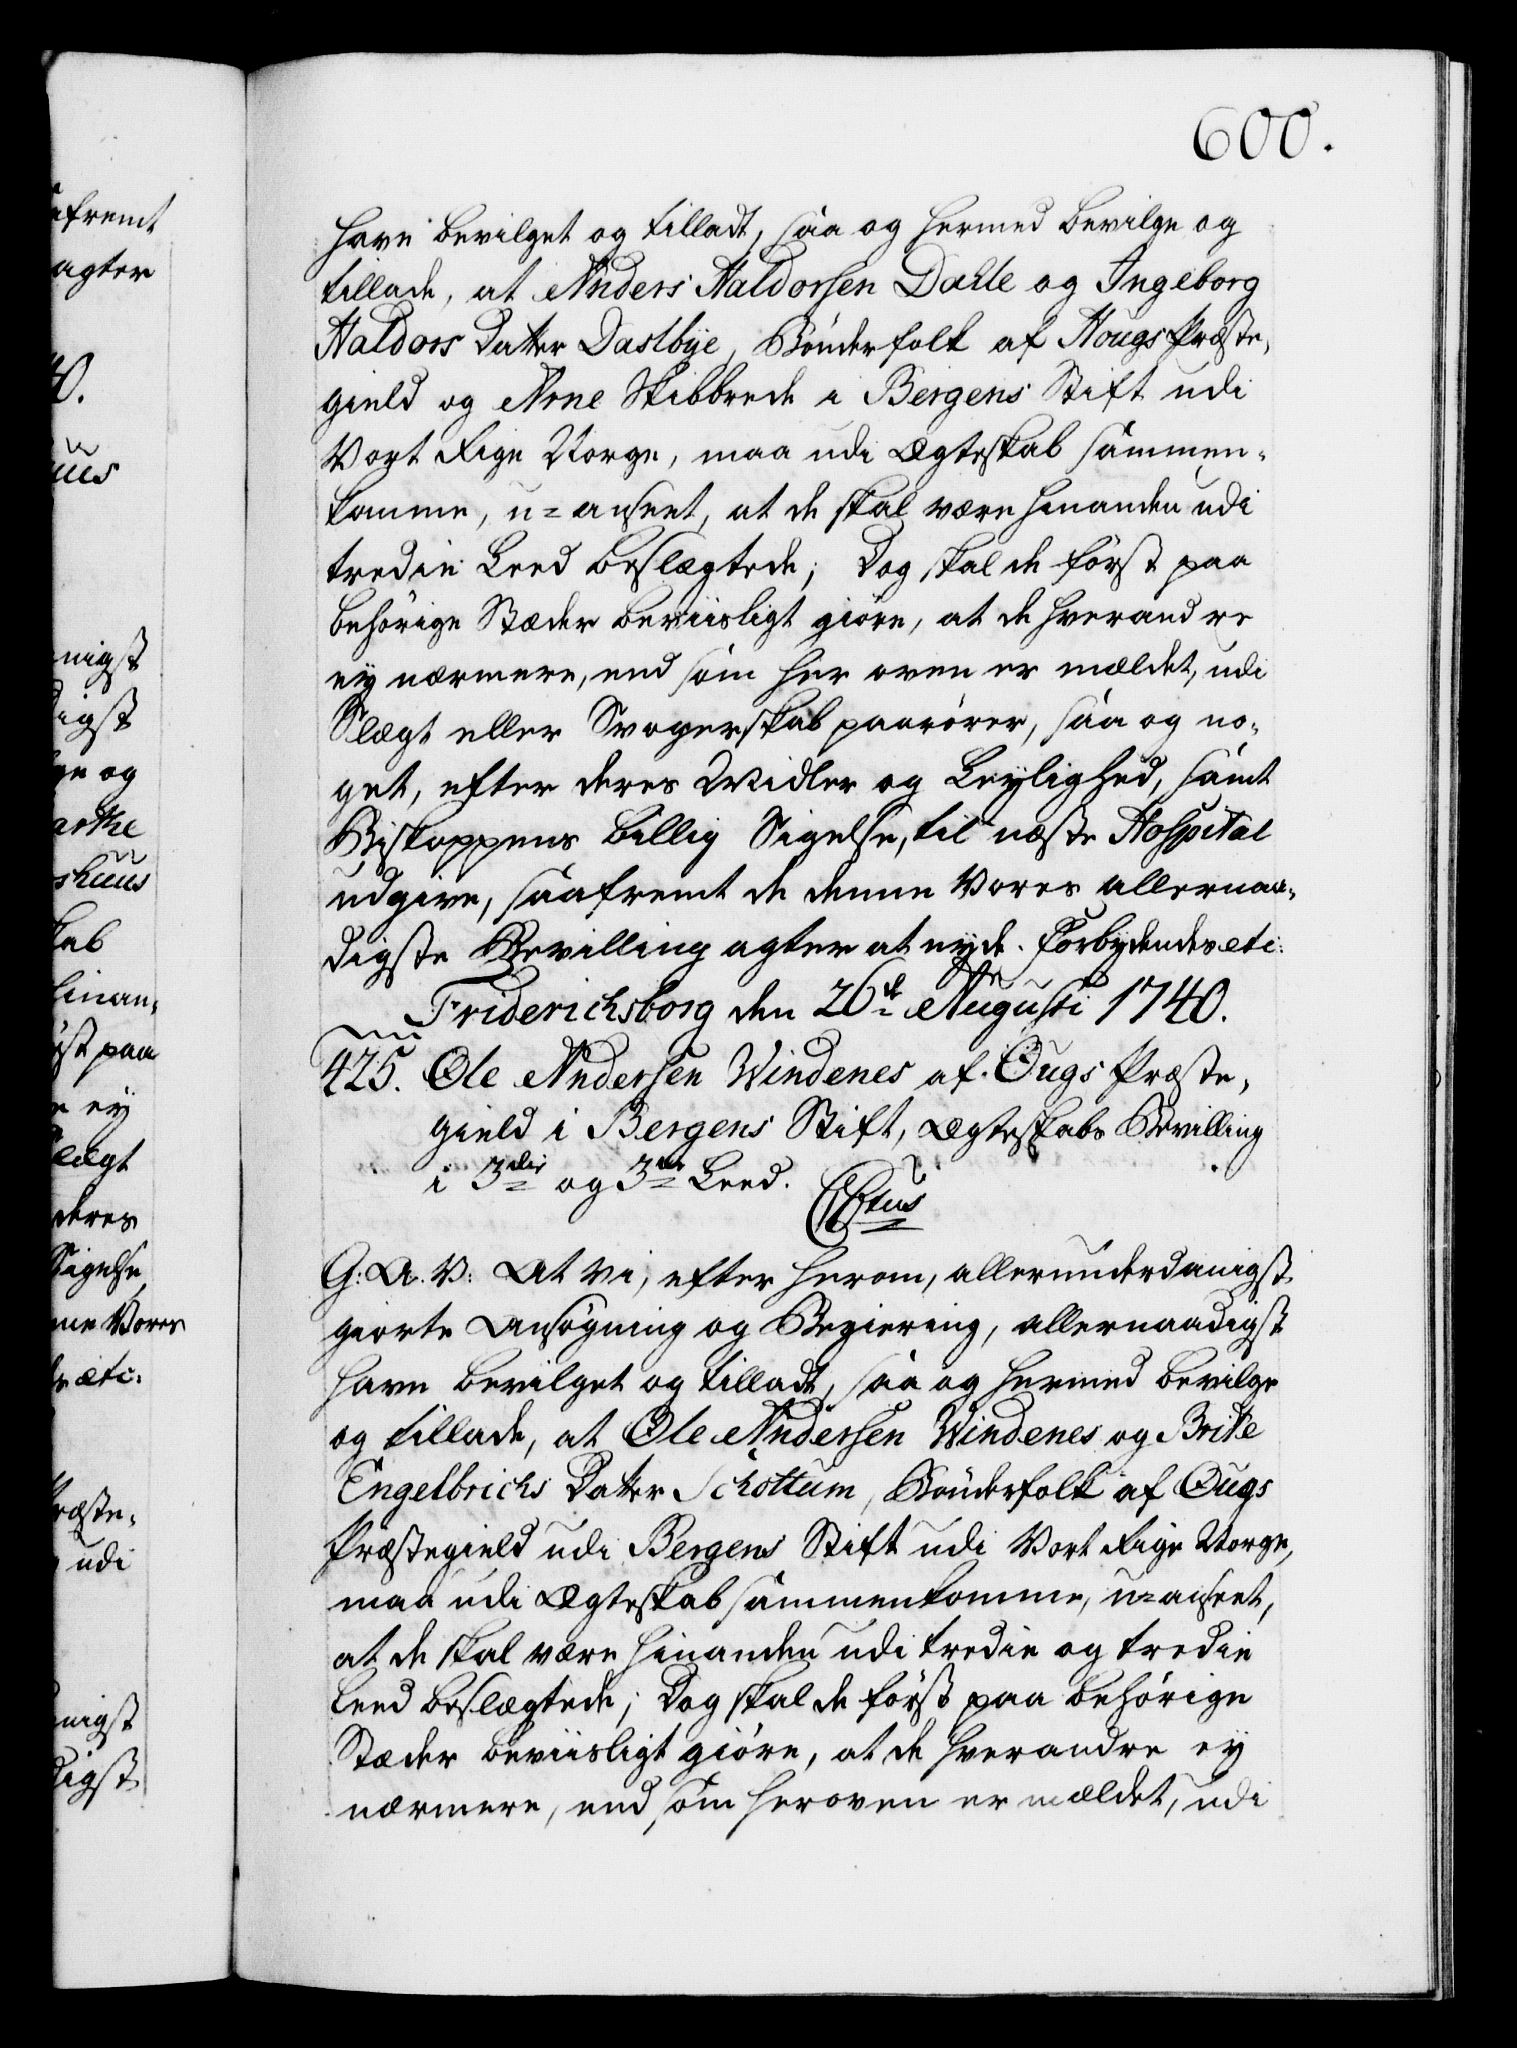 600.
have bevilget og tilladt, saa og hermed bevilge og
tillade, at Anders Haldorsen Dahle og Ingeborg
Haldors Datter Dastbye, Bønderfolk af Hougs Præste-
gield og Arne Skibbrede i Bergens Stift udi
Vort Rige Norge, maa udi Ægteskab sammen-
komme, u=anseet, at de skal være hinanden udi
tredie Leed beslægtede; Dog skal de først paa
behörige Stæder beviisligt giöre, at de hverandre
ey nærmere, end som her oven er mældet, udi
Slægt eller Svogerskab paarörer, saa og no-
get, efter deres Midler og Leylighed, samt
Biskoppens billig Sigelse, til næste Hospital
udgive, saafremt de denne Vores allernaa-
digste Bevilling agter at nyde. Forbydendes etc:
Friderichsborg den 26de Augusti 1740.
425. Ole Andersen Windenes af Ougs Præste-
gield i Bergens Stift, Ægteskabs Bevilling
i 3die og 3die Leed.
G: A. V: At Vi, efter herom, allerunderdanigst
giorte Ansögning og Begiering, allernaadigst
have bevilget og tilladt, saa og hermed bevilge
og tillade, at Ole Andersen Windenes og Brite
Engelbrichs Datter Schottum, Bønderfolk af Ougs
Præstegield udi Bergens Stift udi Vort Rige Norge,
maa udi Ægteskab sammenkomme, u=anseet,
at de skal være hinanden udi tredie og tredie
Leed beslægtede; Dog skal de först paa behörige
Stæder beviisligt giöre, at de hverandre ey
nærmere, end som heroven er mældet, udi